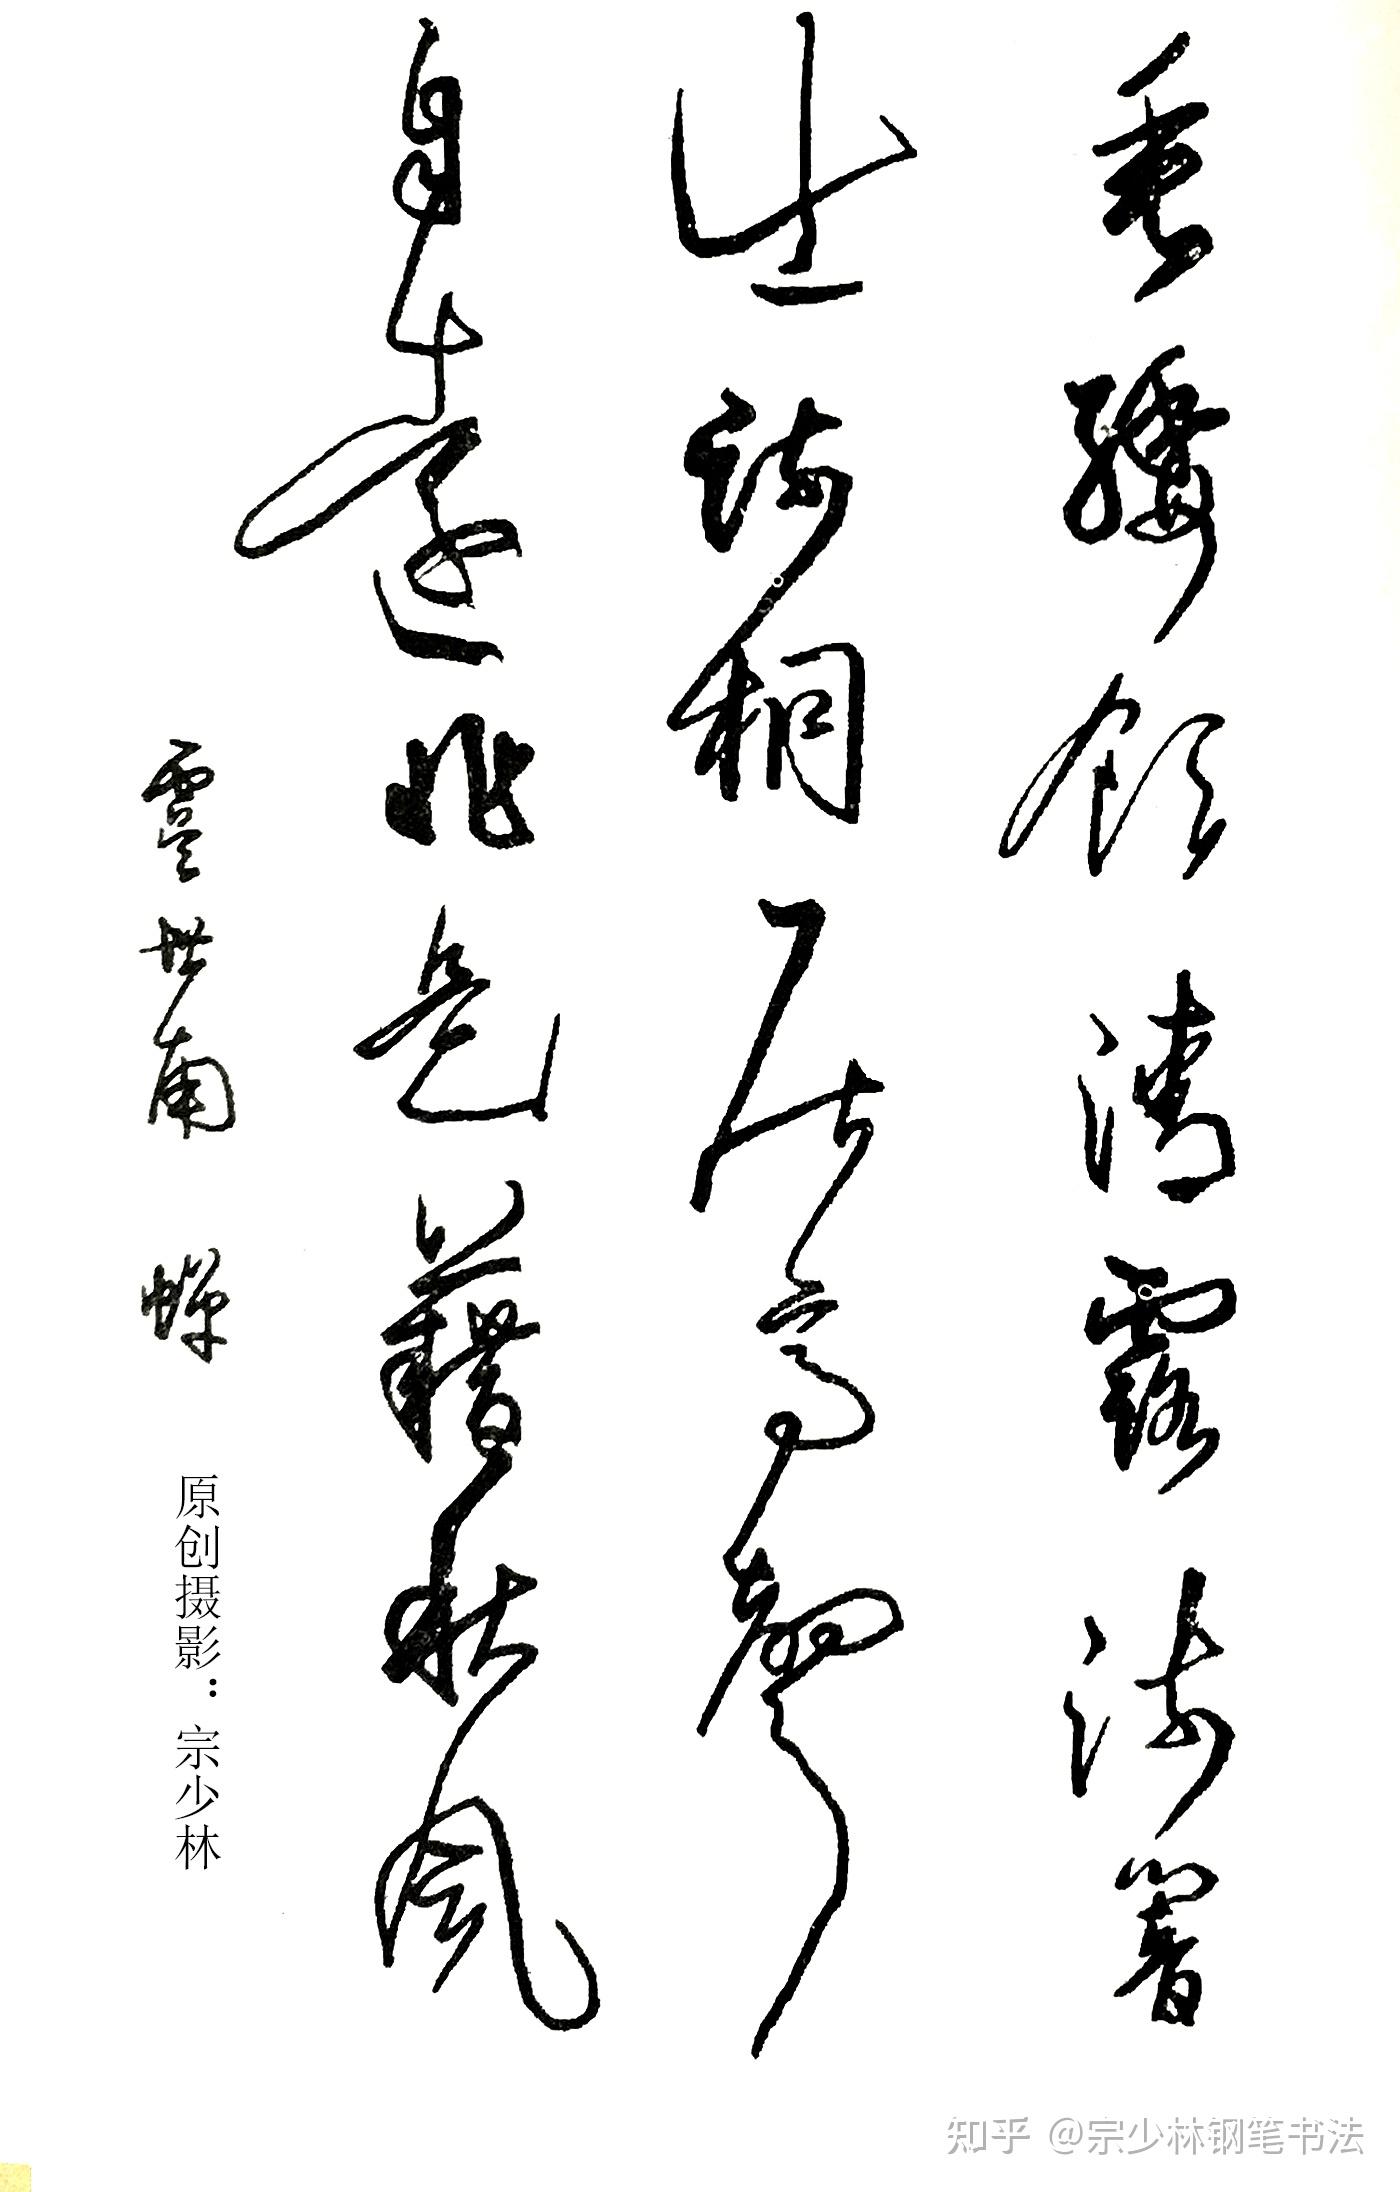 垂緌飲清露流響
出疏桐居高聲
自遠非是藉秋風
虞世南 蟬
原创摄影：宗少林
知乎 @宗少林钢笔书法